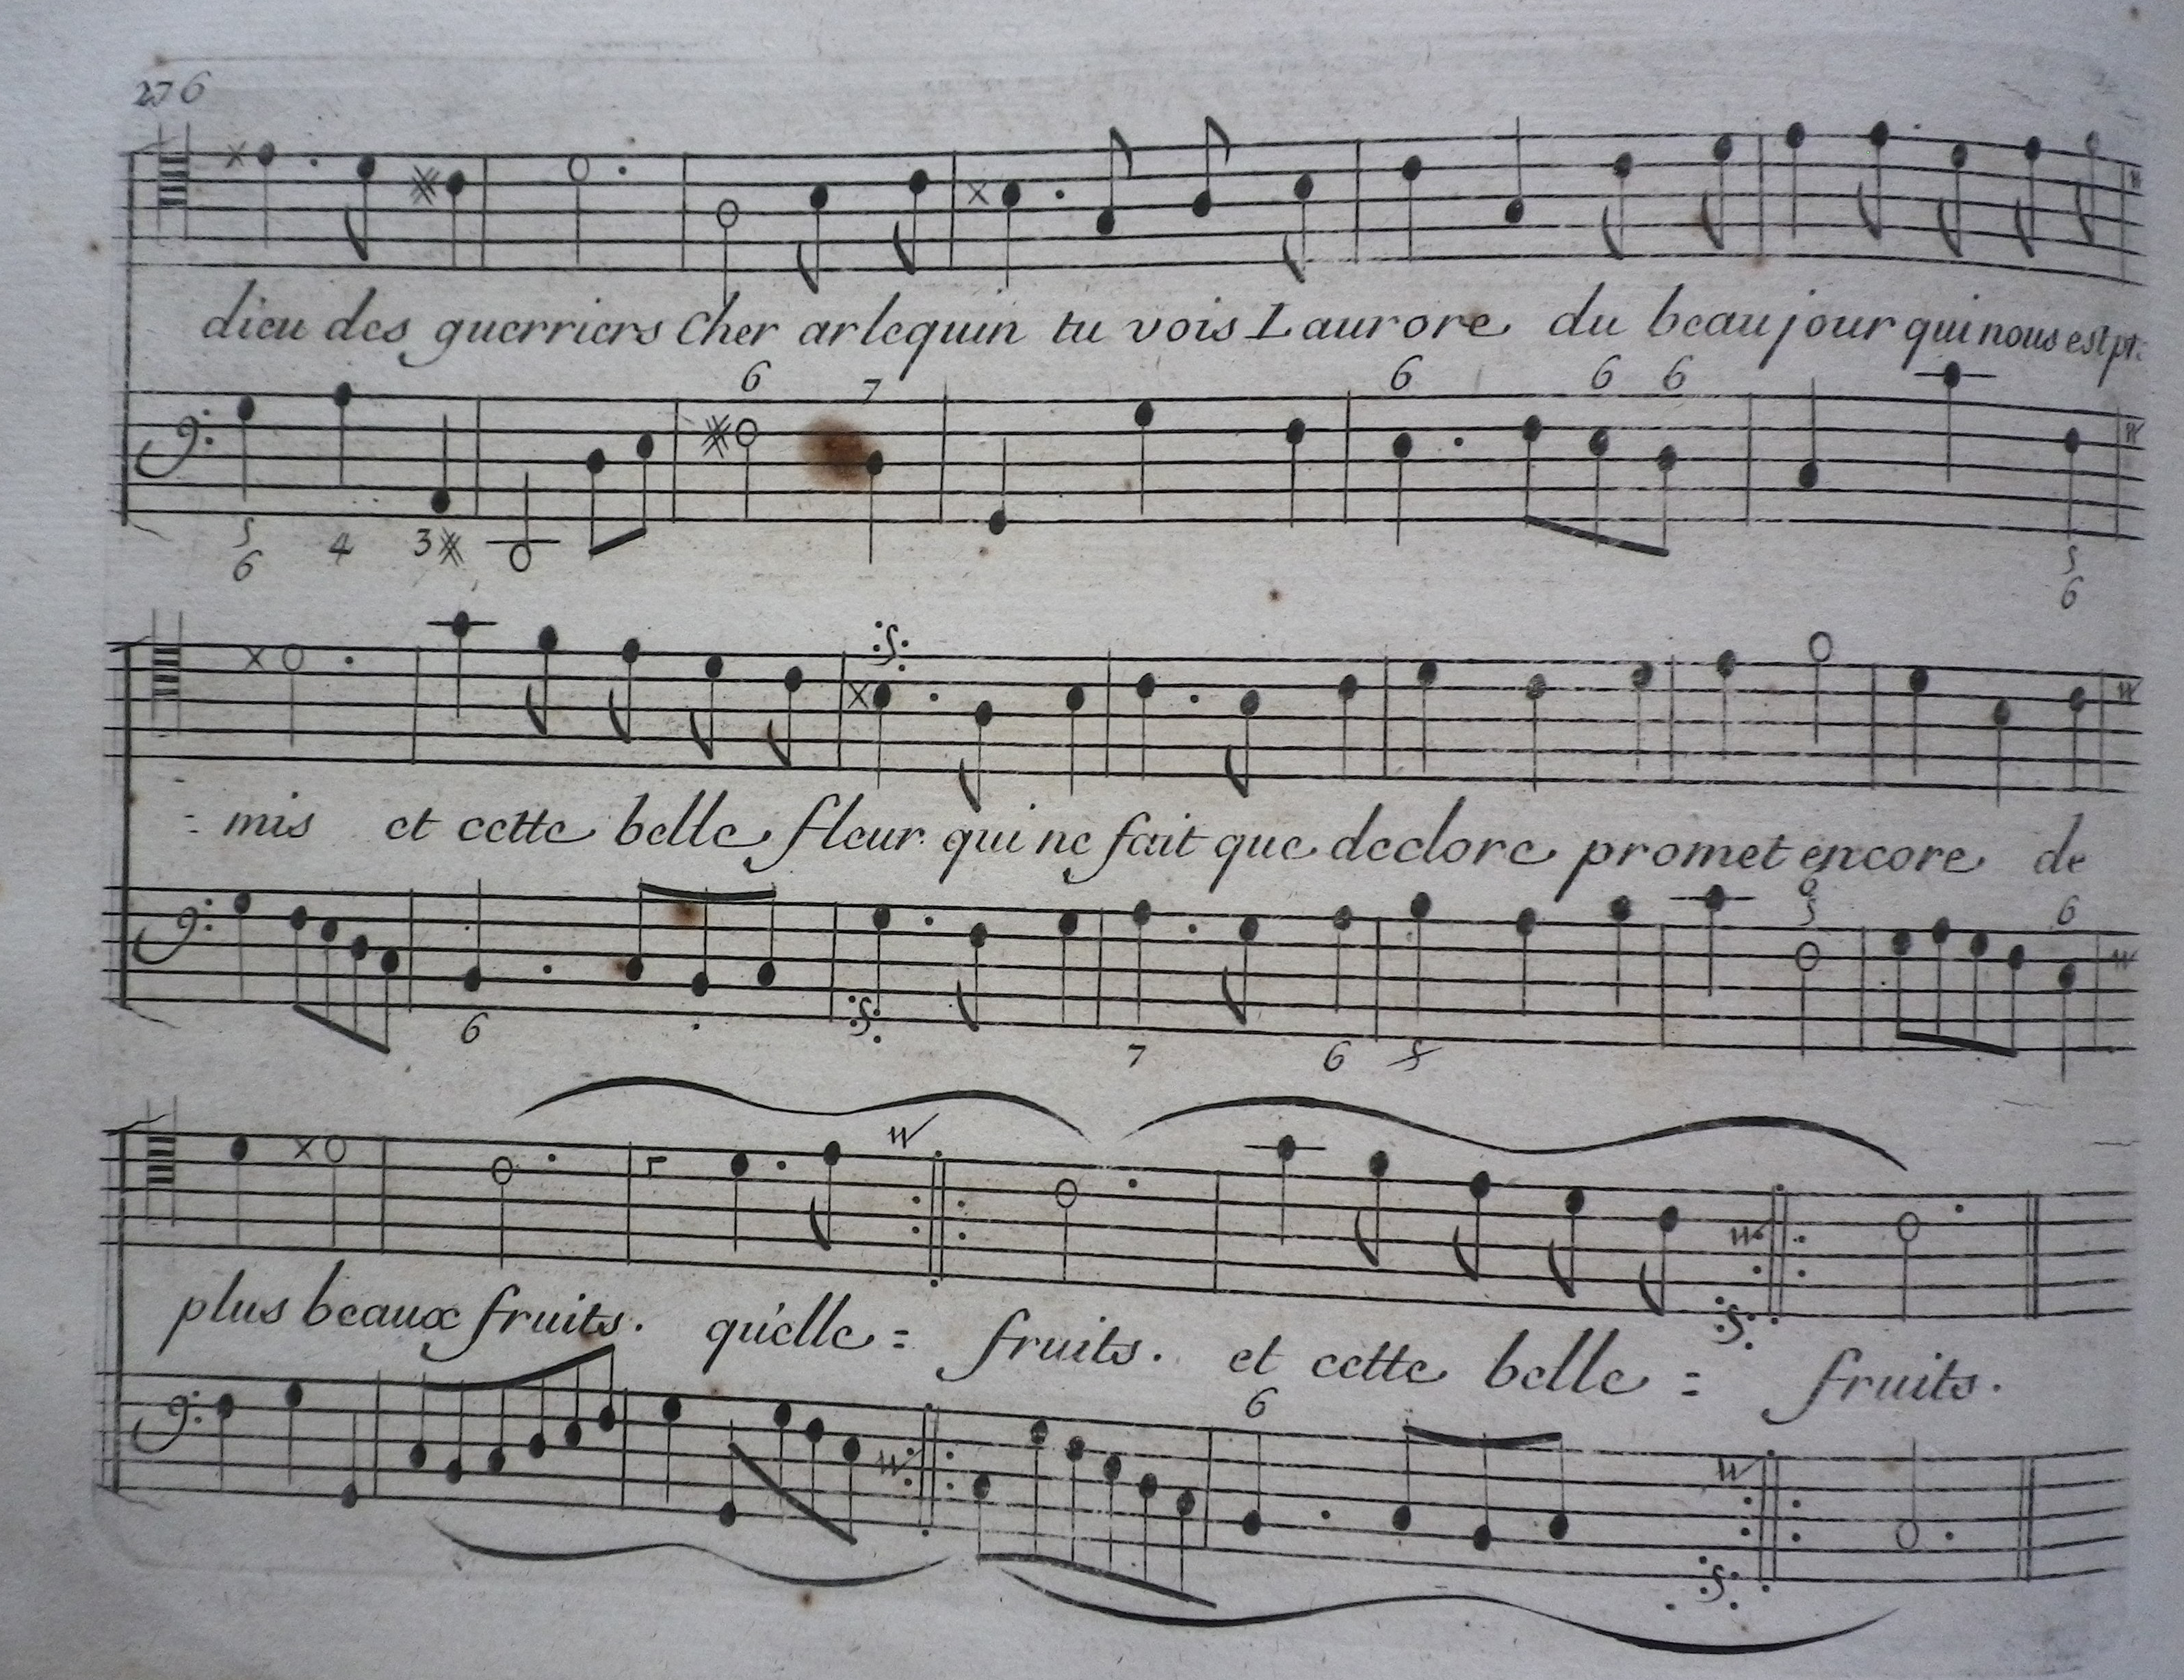 276
dieu des guerriers Cher arlequin tu vois L aurore du beau jour qui nous est pr:
6 7 6 6 6
5 6 4 3 5 6
= mis et cette belle fleur qui ne fait que declore promet encore de
6 5 6
6 7 6 5
plus beaux fruits. qu'elle = fruits. et cette belle = fruits.
6